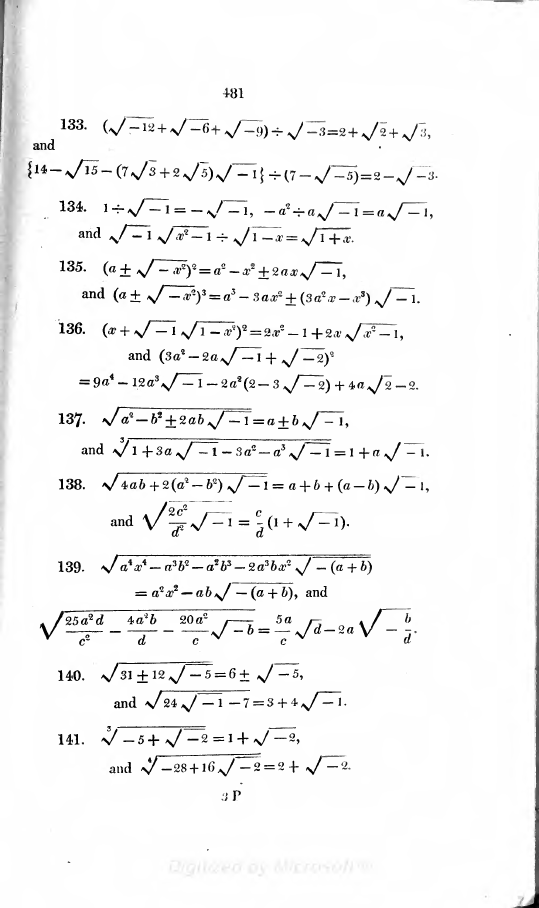 481
133. (√−12 + √−6 + √−9) ÷ √−3 = 2 + √2 + √3,
and
{14 − √15 − (7√3 + 2√5)√−1} ÷ (7 − √−5) = 2 − √−3.
134. 1 ÷ √−1 = − √−1, − a² ÷ a√−1 = a√−1,
and √−1 √x²−1 ÷ √1−x = √1+x.
135. (a ± √−x²)² = a² − x² ± 2ax√−1,
and (a ± √−x²)³ = a³ − 3ax² ± (3a²x − x³)√−1.
136. (x + √−1 √1−x²)² = 2x² − 1 + 2x√x²−1,
and (3a² − 2a√−1 + √−2)²
= 9a⁴ − 12a³√−1 − 2a²(2 − 3√−2) + 4a√2 − 2.
137. √a² − b² ± 2ab√−1 = a ± b√−1,
and ∛1 + 3a√−1 − 3a² − a³√−1 = 1 + a√−1.
138. √4ab + 2(a² − b²)√−1 = a + b + (a − b)√−1,
and √2c²/d² √−1 = c/d (1 + √−1).
139. √a⁴x⁴ − a³b² − a²b³ − 2a³bx²√−(a + b)
= a²x² − ab√−(a + b), and
√25a²d/c² − 4a²b/d − 20a²/c √−b = 5a/c √d − 2a√−b/d.
140. √31 ± 12√−5 = 6 ± √−5,
and √24√−1 − 7 = 3 + 4√−1.
141. ∛−5 + √−2 = 1 + √−2,
and ∜−28 + 16√−2 = 2 + √−2.
3 P
Digitized by Microsoft®